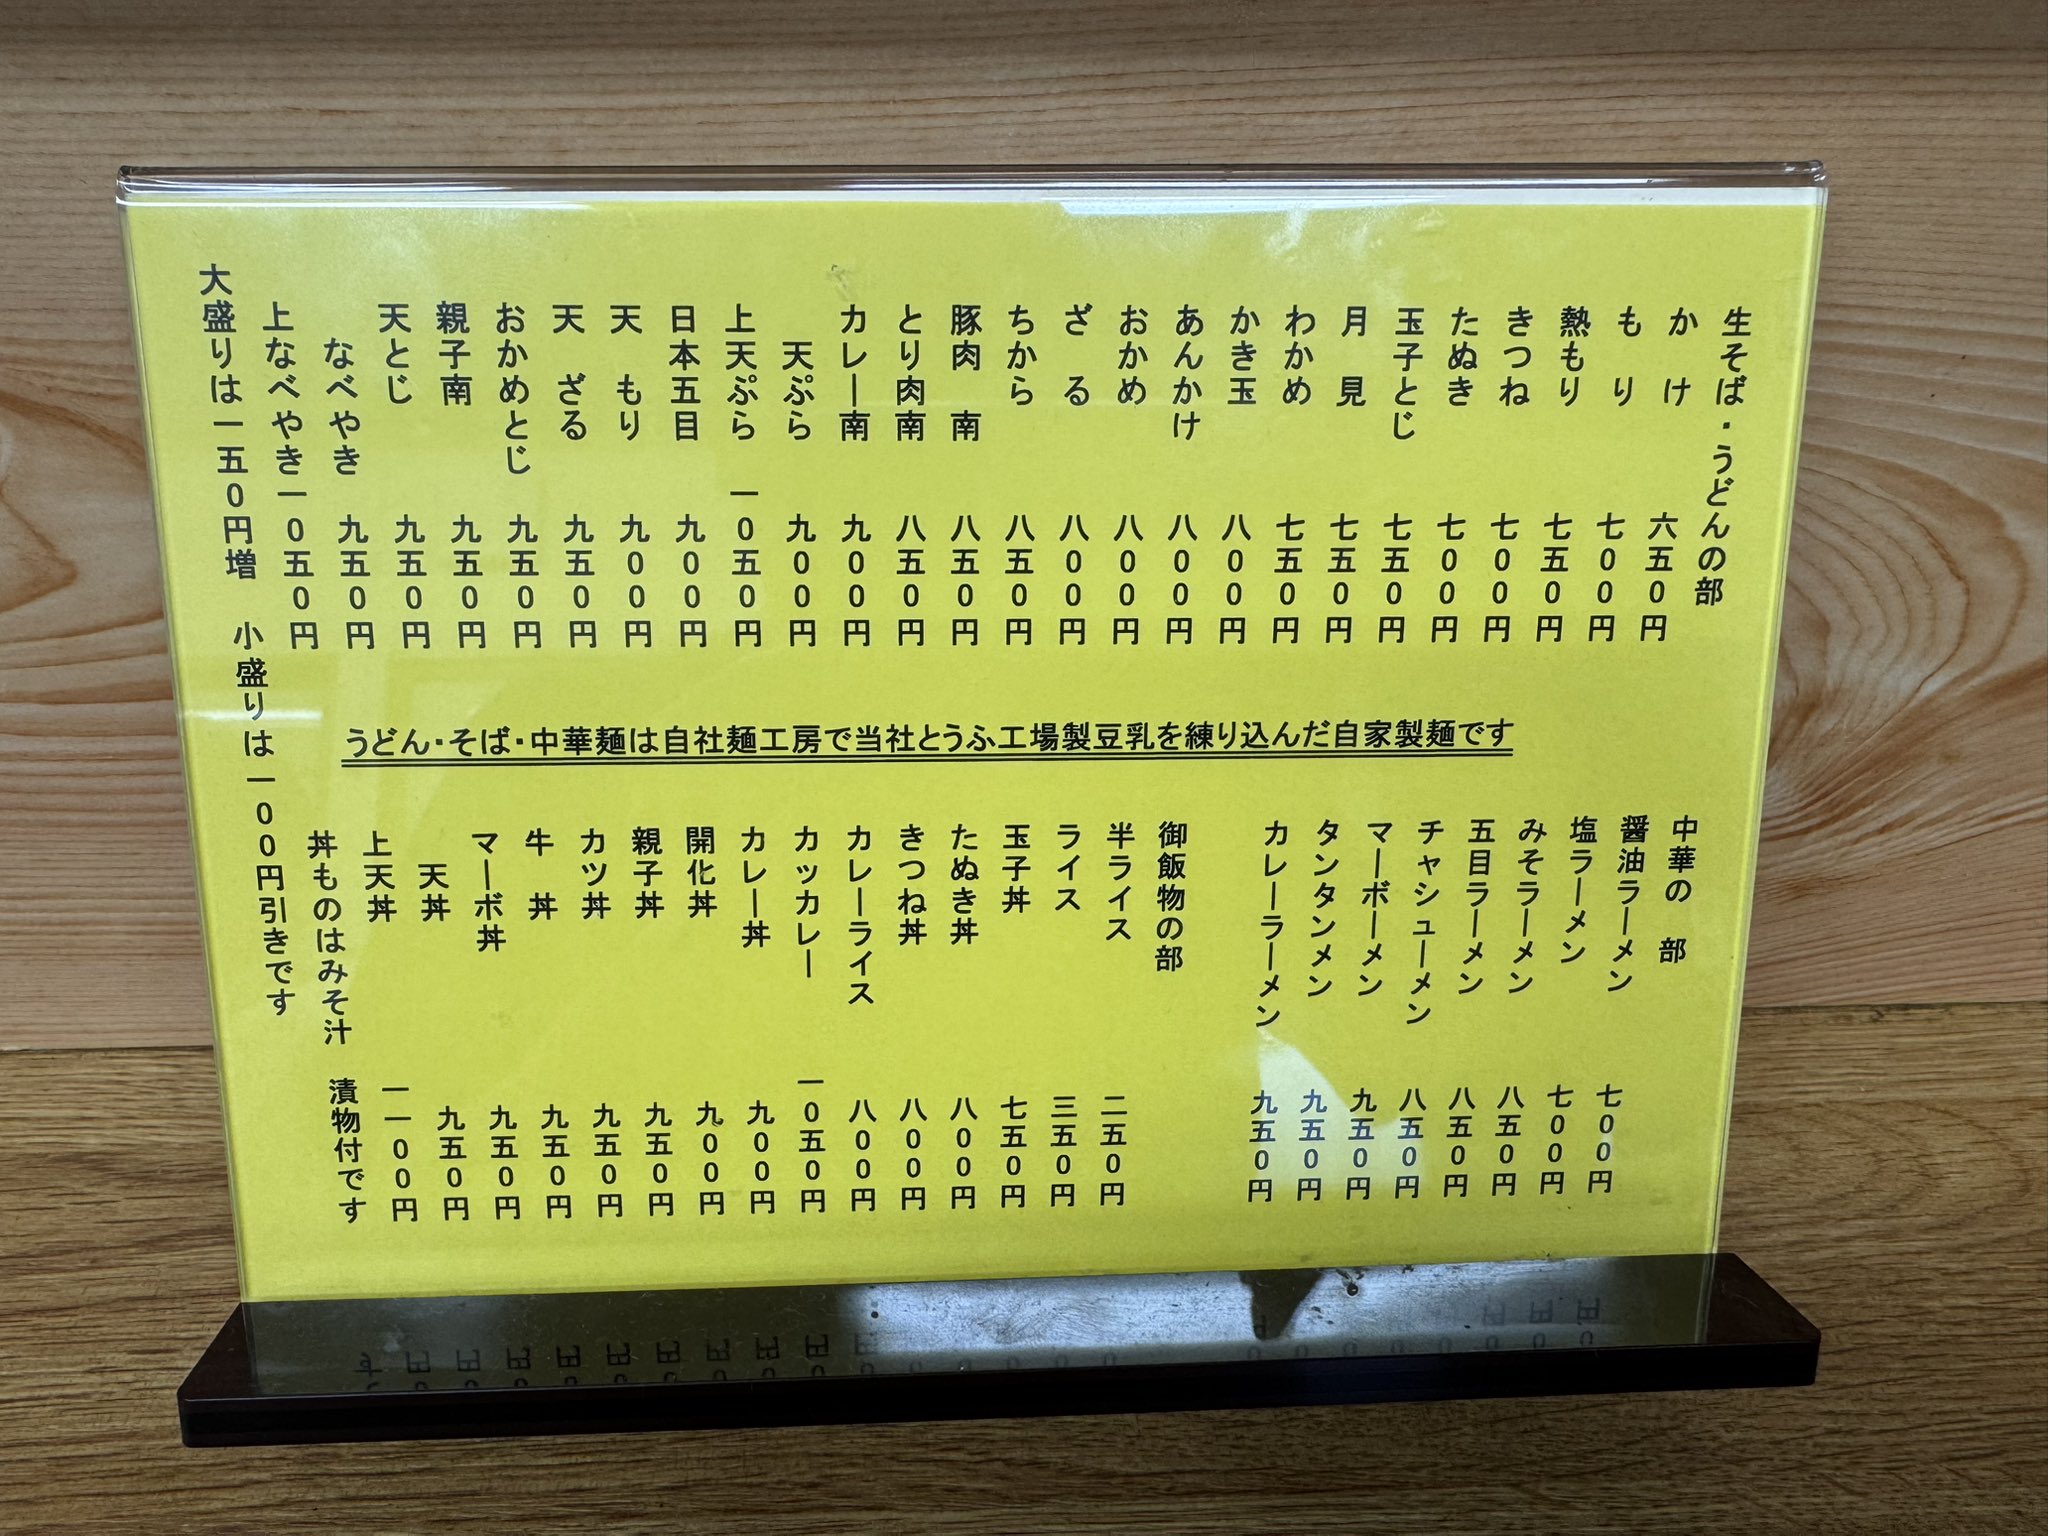 生そば・うどんの部
かけ 六五0円
もり 七00円
熱もり 七五0円
きつね 七00円
たぬき 七00円
玉子とじ 七五0円
月見 七五0円
わかめ 七五0円
かき玉 八00円
あんかけ 八00円
おかめ 八00円
ざる 八00円
ちから 八五0円
豚肉南 八五0円
とり肉南 八五0円
カレー南 九00円
天ぷら 九00円
上天ぷら 一0五0円
日本五目 九00円
天もり 九00円
天ざる 九五0円
おかめとじ 九五0円
親子南 九五0円
天とじ 九五0円
なべやき 九五0円
上なべやき 一0五0円
大盛りは一五0円増 小盛りは一00円引きです
うどん・そば・中華麺は自社麺工房で当社とうふ工場製豆乳を練り込んだ自家製麺です
中華の部
醤油ラーメン 七00円
塩ラーメン 七00円
みそラーメン 八五0円
五目ラーメン 八五0円
チャシューメン 八五0円
マーボーメン 九五0円
タンタンメン 九五0円
カレーラーメン 九五0円
御飯物の部
半ライス 二五0円
ライス 三五0円
玉子丼 七五0円
たぬき丼 八00円
きつね丼 八00円
カレーライス 八00円
カッカレー 一0五0円
カレー丼 九00円
開化丼 九00円
親子丼 九五0円
カツ丼 九五0円
牛丼 九五0円
マーボ丼 九五0円
天丼 九五0円
上天丼 一一00円
丼ものはみそ汁 漬物付です